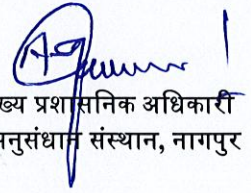 ख्य प्रशासनिक अधिकारी
नुसंधान संस्थान, नागपुर